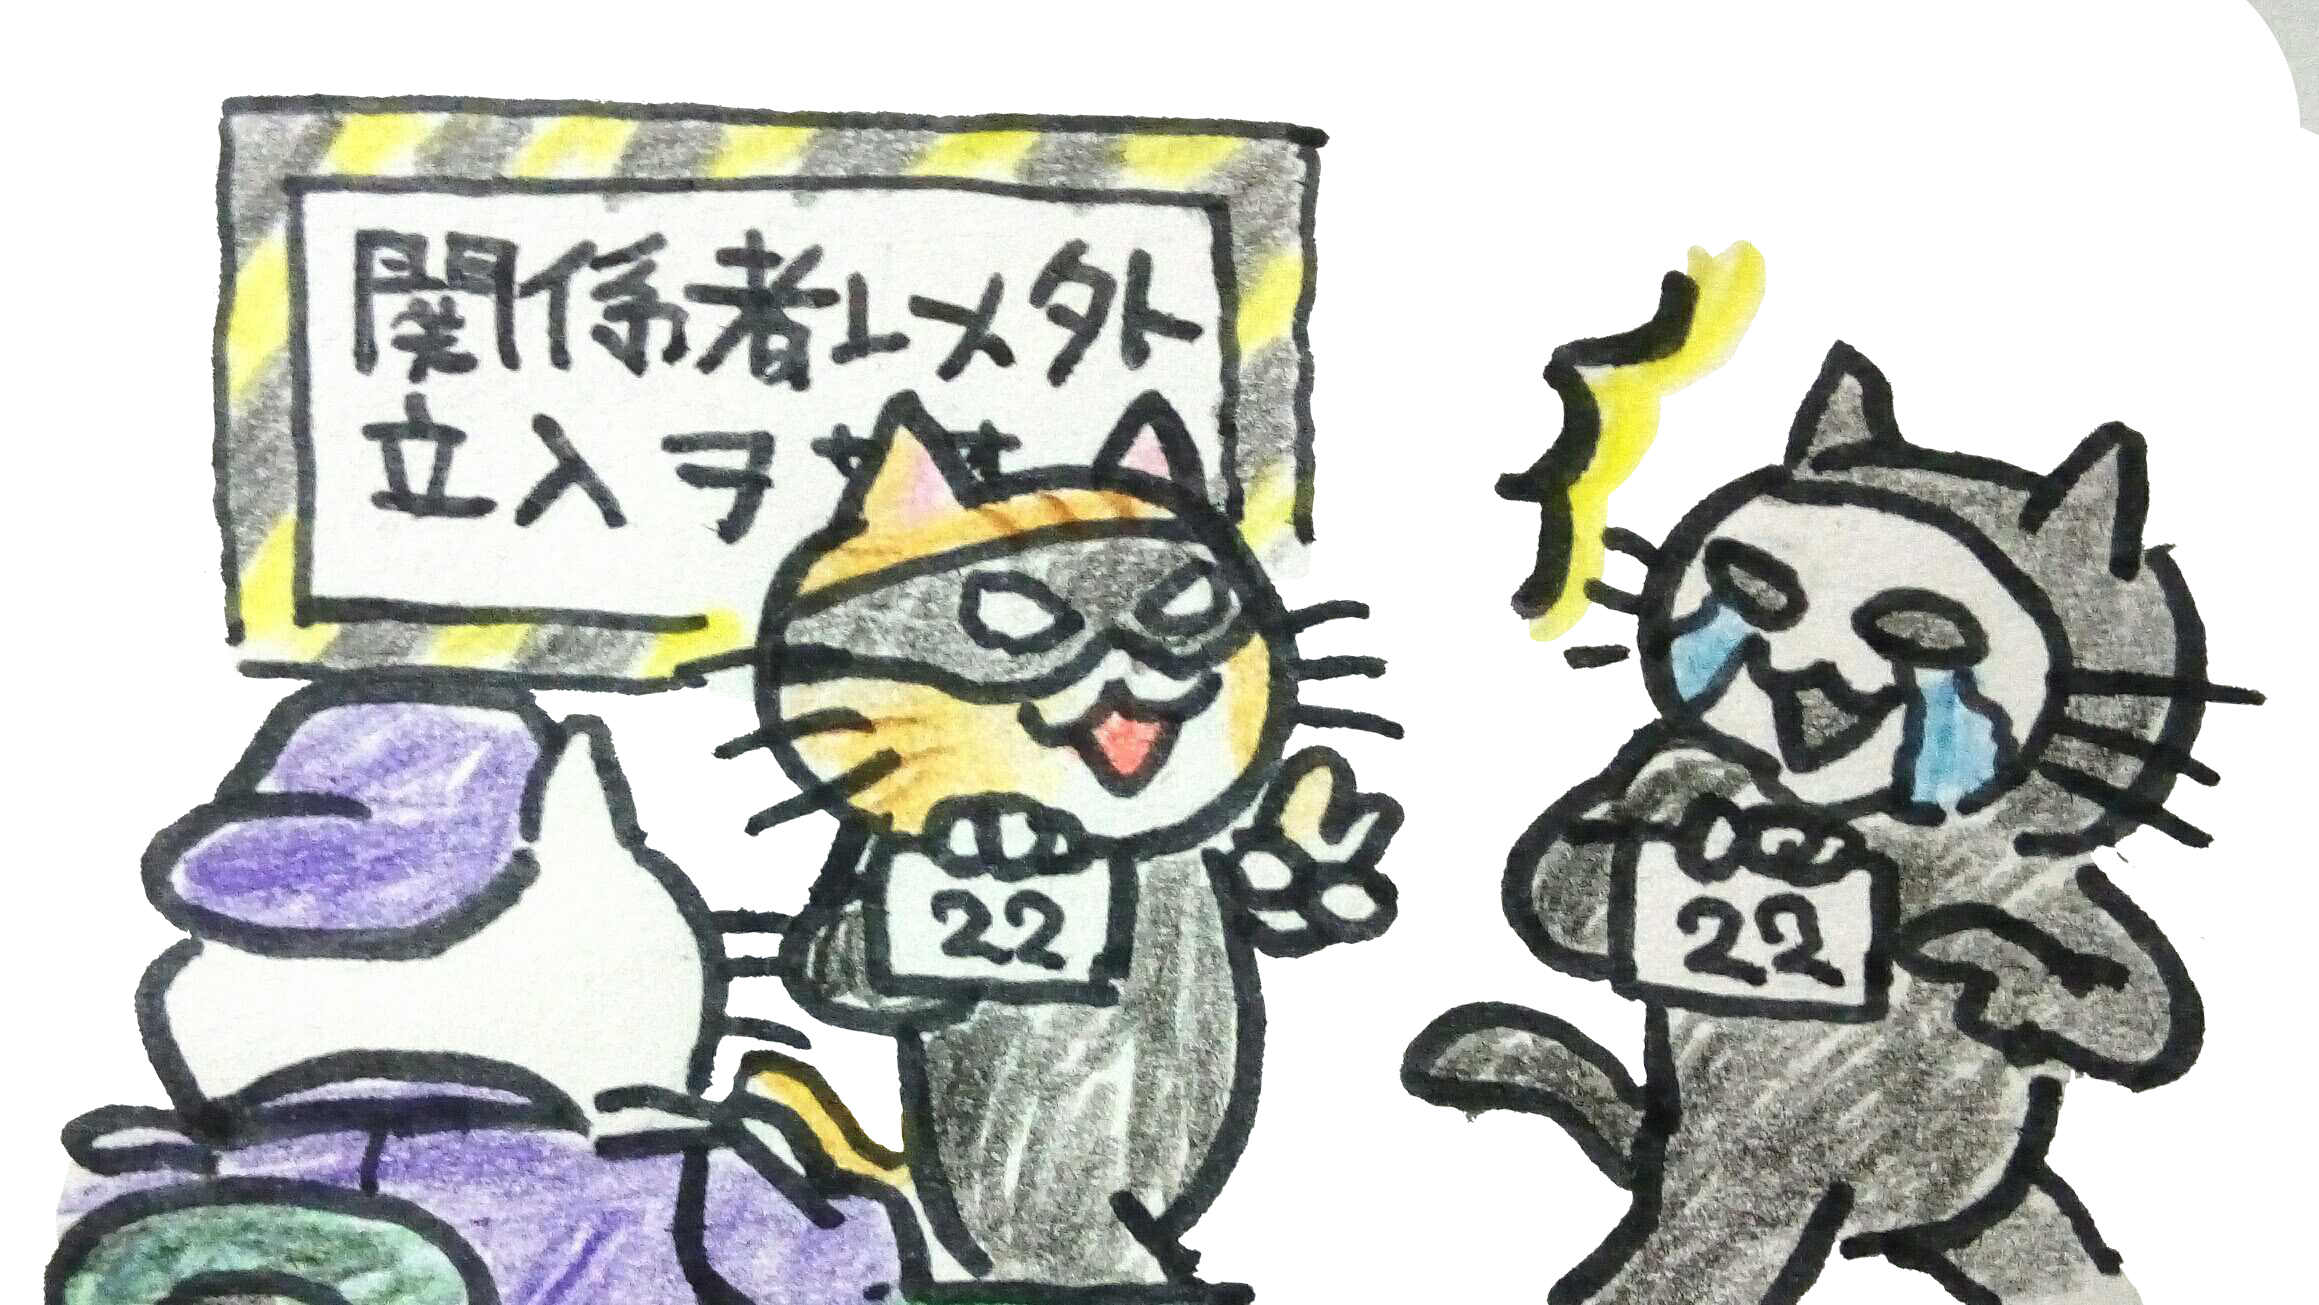 関係者以外
立入ヲ
22
22